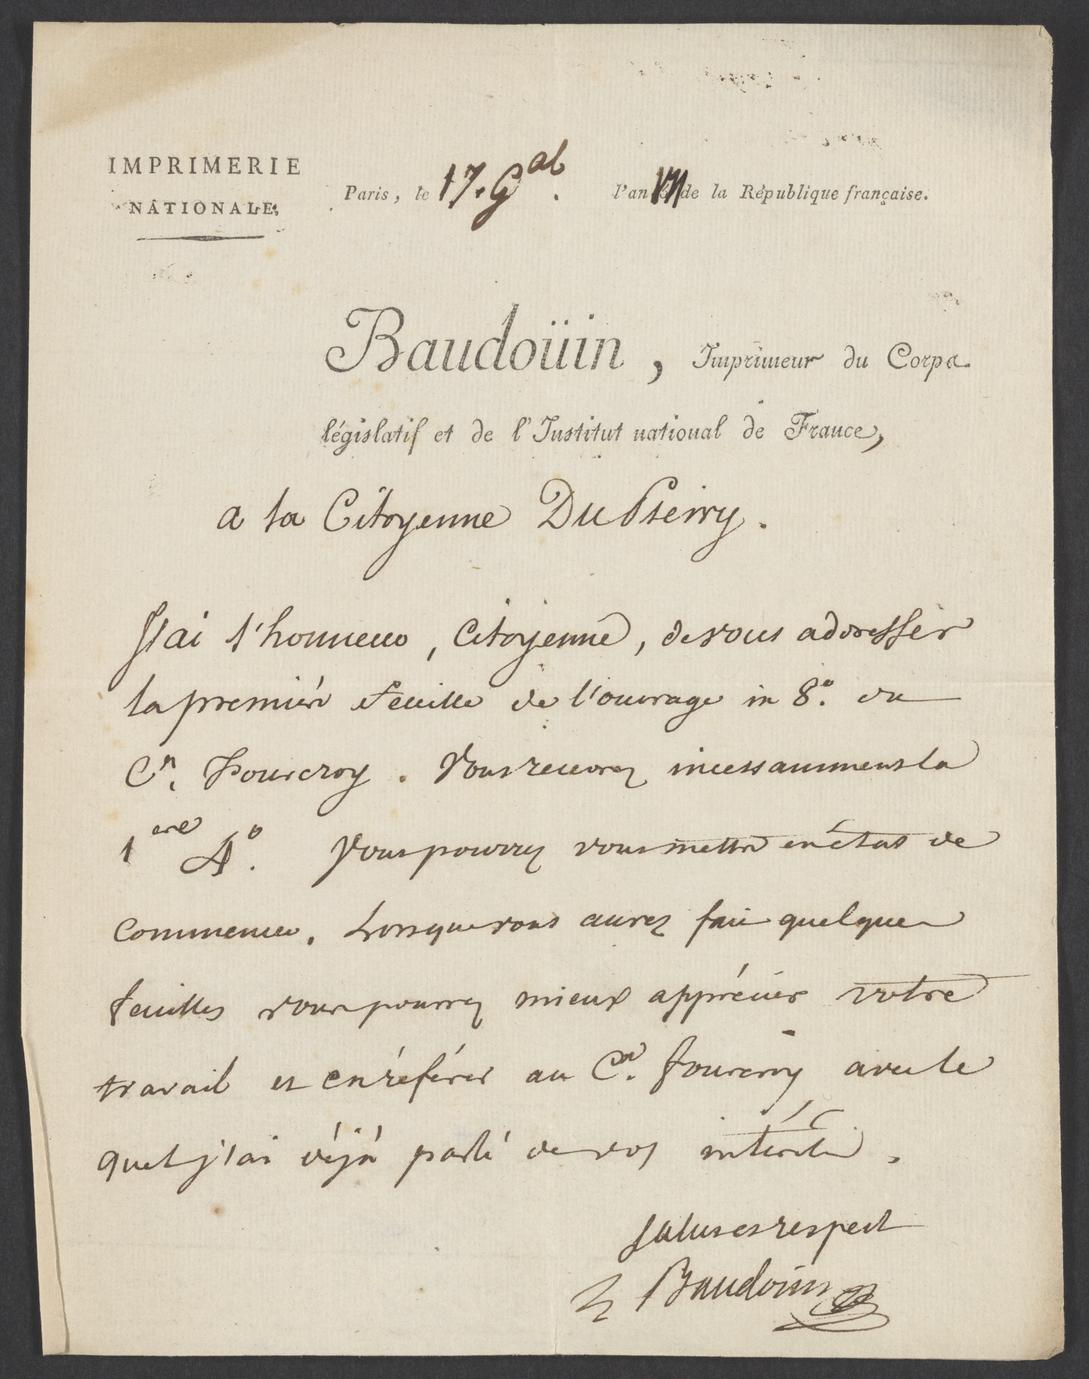 IMPRIMERIE
NATIONALE.
Paris, le 17. Gal. l'an VII de la République française.
Baudoüin, Imprimeur du Corps
législatif et de l'Institut national de France,
a la Citoyenne DuPierry.
J'ai l'honneur, Citoyenne, de vous addresser
la premiére feuille de l'ouvrage in 8.° du
Cn. Fourcroy. Vous recevrez incessamment la
1ere 4°. Vous pourrez vous mettre en état de
commencer. Lorsque vous aurez fait quelques
feuilles vous pourrez mieux apprécier votre
travail et en référer au Cn. Fourcroy avec le
quel j'ai déjà parlé de vos intérêts.
Salut et respect
Baudouin